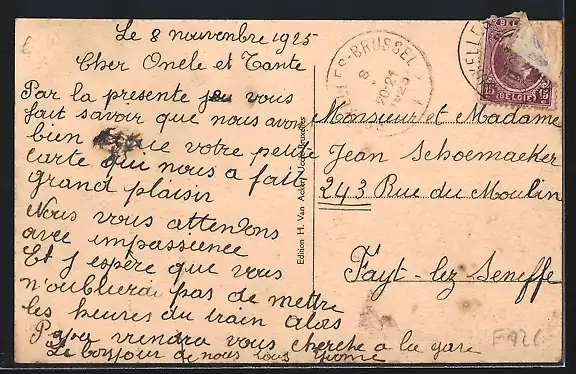 Le 8 nouvenbre 1925
Cher Oncle et Tante
Par la presente je vous
fait savoir que nous avons
bien que votre petite
carte qui nous a fait
grand plaisir
Nous vous attendons
avec impassience
Et j espère que vous
n'oublierai pas de mettre
les heures du train Alors
Papa viendra vous cherche a la gare
Le bonjour de nous tous
Edition H. Van Acker
BRUSSEL
8
20-21
1925
BELGIE
15 15
Monsieur et Madame
Jean Schoemaeker
243 Rue du Moulin
Fayt-lez Seneffe
F926